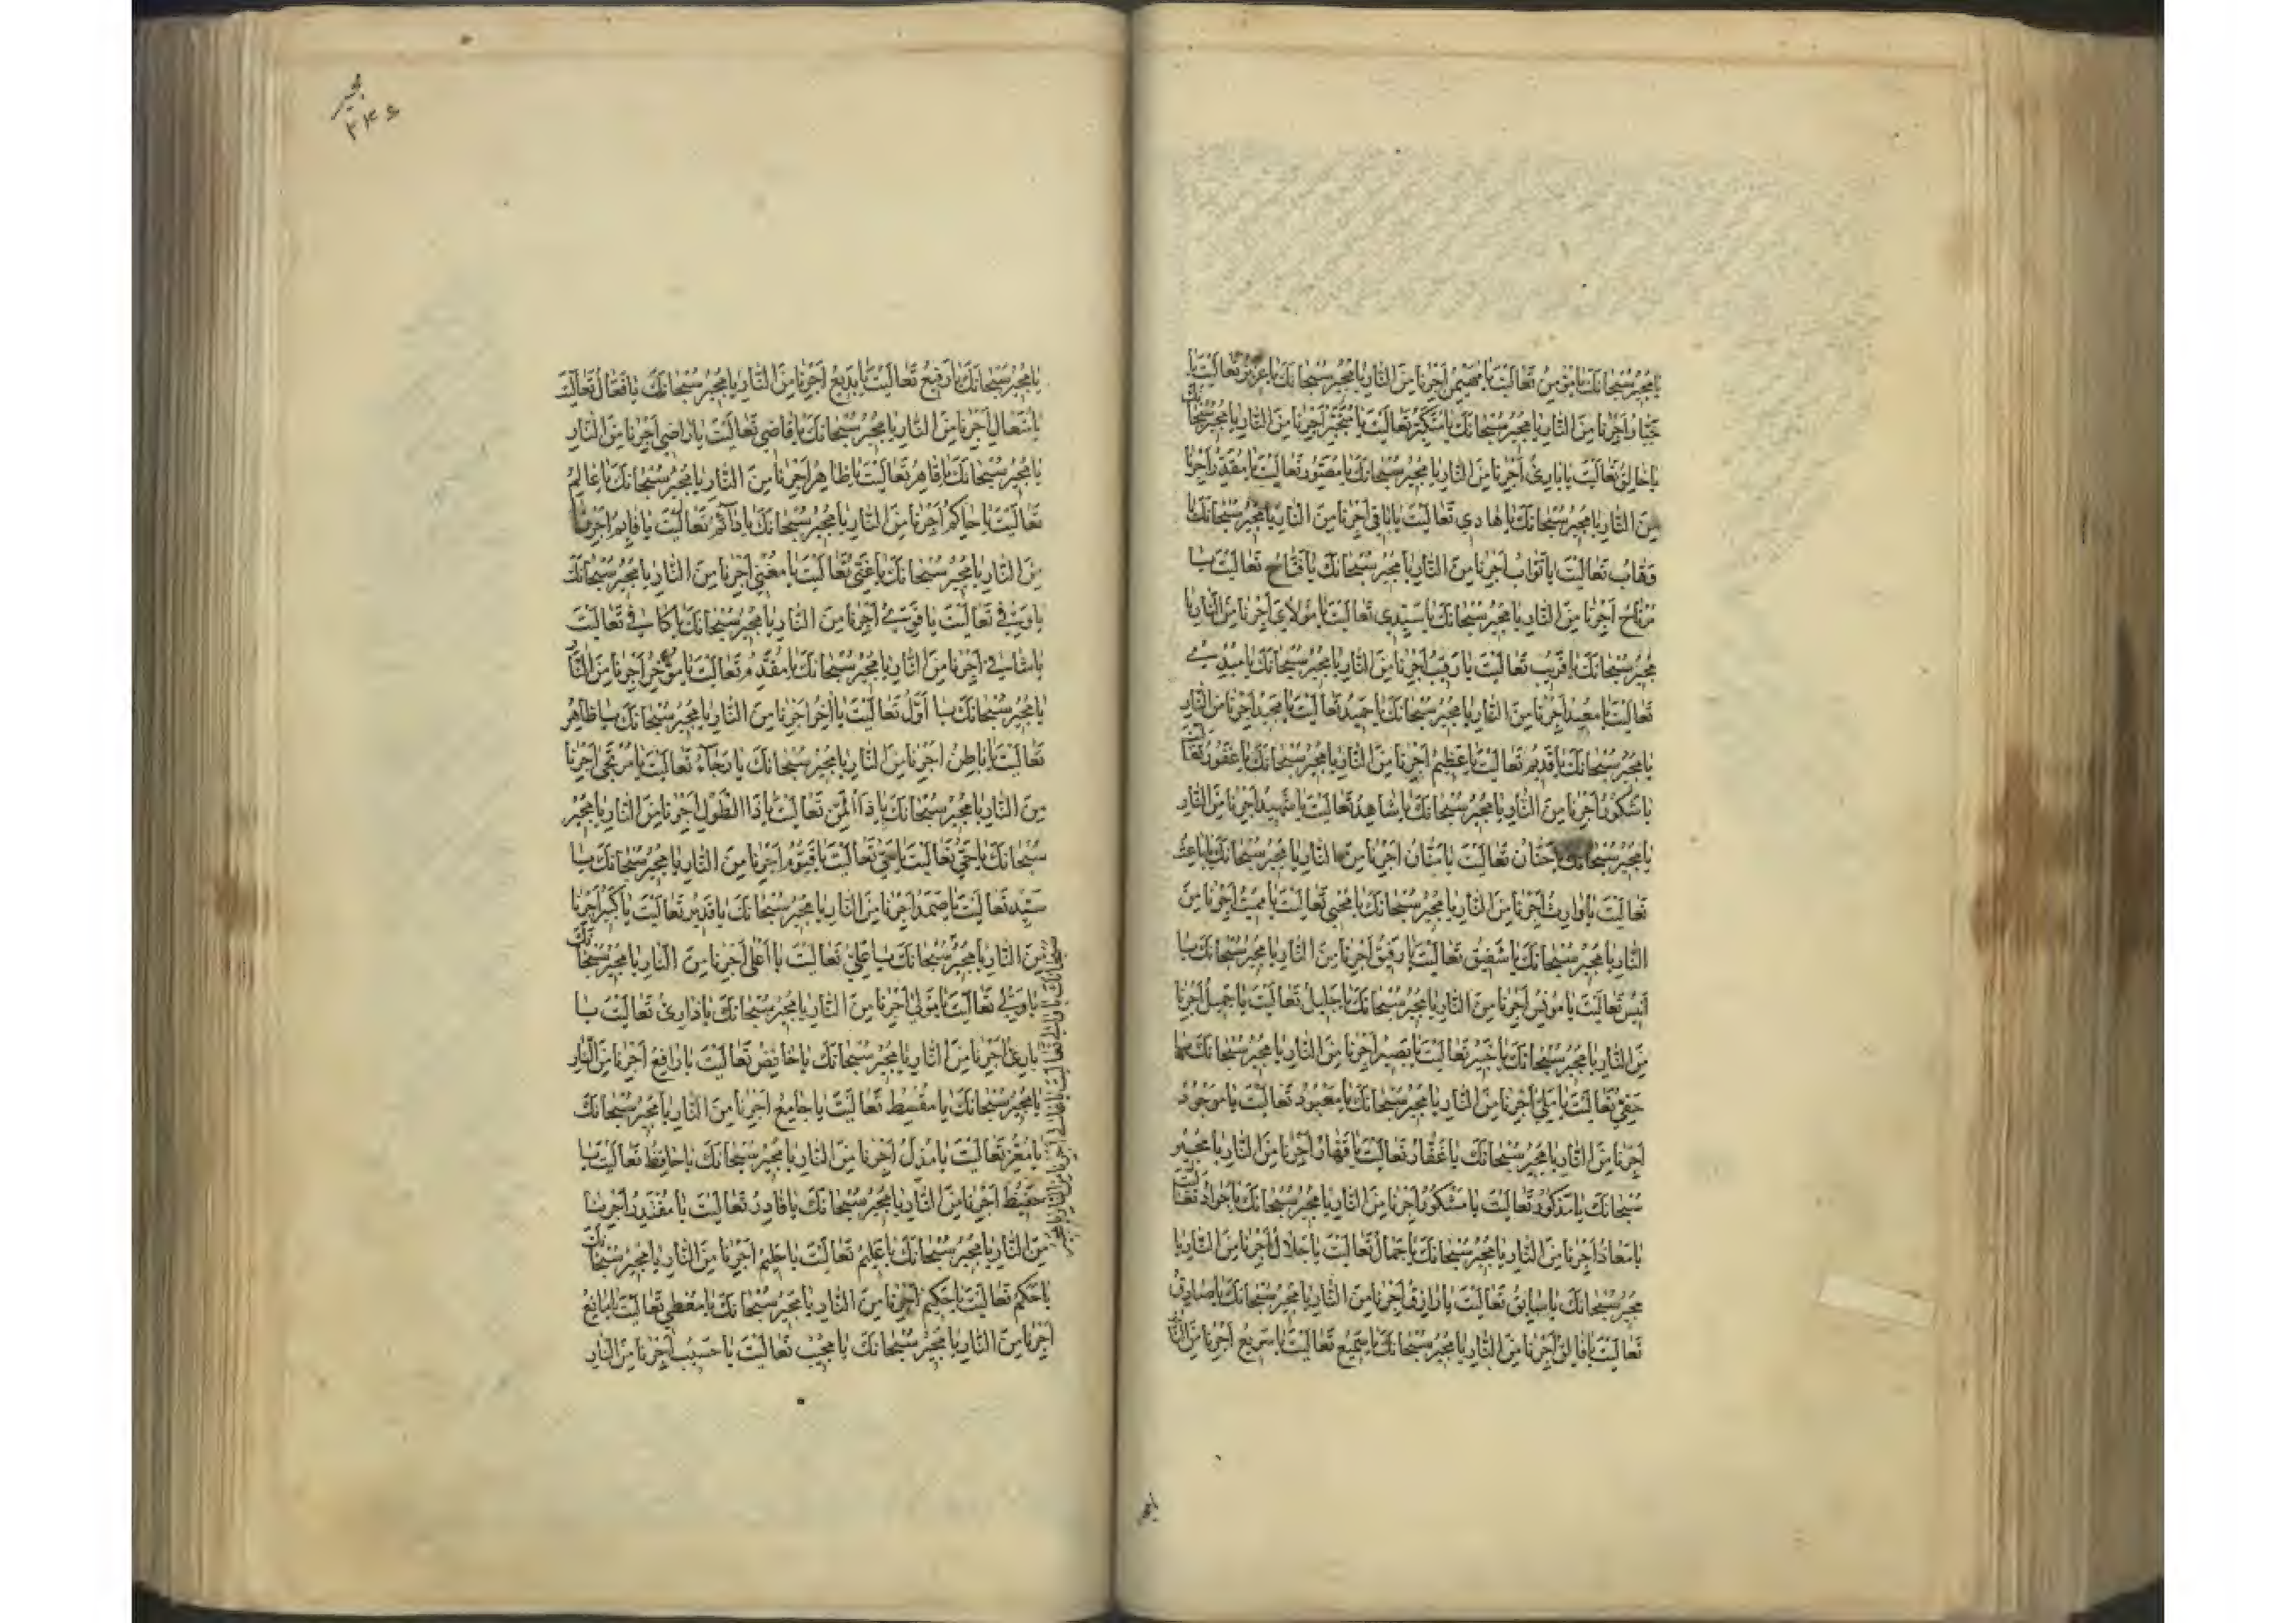 يا مجير سبحانك يا مؤمن تعاليت يا مهيمن اجرنا من النار يا مجير سبحانك يا عزيز تعاليت يا
جبار اجرنا من النار يا مجير سبحانك يا متكبر تعاليت يا متجبر اجرنا من النار يا مجير سبحانك
يا خالق تعاليت يا بارئ اجرنا من النار يا مجير سبحانك يا مصور تعاليت يا مقدر اجرنا
من النار يا مجير سبحانك يا هادي تعاليت يا باقي اجرنا من النار يا مجير سبحانك يا
وهاب تعاليت يا تواب اجرنا من النار يا مجير سبحانك يا فتاح تعاليت يا
مرتاح اجرنا من النار يا مجير سبحانك يا سيدي تعاليت يا مولاي اجرنا من النار يا
مجير سبحانك يا قريب تعاليت يا رقيب اجرنا من النار يا مجير سبحانك يا مبدئ
تعاليت يا معيد اجرنا من النار يا مجير سبحانك يا حميد تعاليت يا مجيد اجرنا من النار
يا مجير سبحانك يا قديم تعاليت يا عظيم اجرنا من النار يا مجير سبحانك يا غفور تعاليت
يا شكور اجرنا من النار يا مجير سبحانك يا شاهد تعاليت يا شهيد اجرنا من النار
يا مجير سبحانك يا حنان تعاليت يا منان اجرنا من النار يا مجير سبحانك يا باعث
تعاليت يا وارث اجرنا من النار يا مجير سبحانك يا محيي تعاليت يا مميت اجرنا من
النار يا مجير سبحانك يا شفيق تعاليت يا رفيق اجرنا من النار يا مجير سبحانك يا
انيس تعاليت يا مونس اجرنا من النار يا مجير سبحانك يا جليل تعاليت يا جميل اجرنا
من النار يا مجير سبحانك يا خبير تعاليت يا بصير اجرنا من النار يا مجير سبحانك يا
حفي تعاليت يا ملي اجرنا من النار يا مجير سبحانك يا معبود تعاليت يا موجود
اجرنا من النار يا مجير سبحانك يا غفار تعاليت يا قهار اجرنا من النار يا مجير
سبحانك يا مذكور تعاليت يا مشكور اجرنا من النار يا مجير سبحانك يا جواد تعاليت
يا معاذ اجرنا من النار يا مجير سبحانك يا جمال تعاليت يا جلال اجرنا من النار يا
مجير سبحانك يا سابق تعاليت يا رازق اجرنا من النار يا مجير سبحانك يا صادق
تعاليت يا فالق اجرنا من النار يا مجير سبحانك يا سميع تعاليت يا سريع اجرنا من النار
مجير
۲۴۶
يا مجير سبحانك يا رفيع تعاليت يا بديع اجرنا من النار يا مجير سبحانك يا فعال تعاليت
يا متعال اجرنا من النار يا مجير سبحانك يا قاضي تعاليت يا راضي اجرنا من النار
يا مجير سبحانك يا قاهر تعاليت يا ظاهر اجرنا من النار يا مجير سبحانك يا عالم
تعاليت يا حاكم اجرنا من النار يا مجير سبحانك يا دآئم تعاليت يا قايم اجرنا
من النار يا مجير سبحانك يا غني تعاليت يا مغني اجرنا من النار يا مجير سبحانك
يا وفي تعاليت يا قوي اجرنا من النار يا مجير سبحانك يا كافي تعاليت
يا شافي اجرنا من النار يا مجير سبحانك يا مقدم تعاليت يا مؤخر اجرنا من النار
يا مجير سبحانك يا اول تعاليت يا اخر اجرنا من النار يا مجير سبحانك يا ظاهر
تعاليت يا باطن اجرنا من النار يا مجير سبحانك يا رجآء تعاليت يا مرتجى اجرنا
من النار يا مجير سبحانك يا ذا المن تعاليت يا ذا الطول اجرنا من النار يا مجير
سبحانك يا حي تعاليت يا حي تعاليت يا قيوم اجرنا من النار يا مجير سبحانك يا
سيد تعاليت يا صمد اجرنا من النار يا مجير سبحانك يا قدير تعاليت يا كبير اجرنا
من النار يا مجير سبحانك يا علي تعاليت يا اعلى اجرنا من النار يا مجير سبحانك
يا ولي تعاليت يا مولي اجرنا من النار يا مجير سبحانك يا ذارئ تعاليت يا
بارئ اجرنا من النار يا مجير سبحانك يا خافض تعاليت يا رافع اجرنا من النار
يا مجير سبحانك يا مقسط تعاليت يا جامع اجرنا من النار يا مجير سبحانك
يا معز تعاليت يا مذل اجرنا من النار يا مجير سبحانك يا حافظ تعاليت يا
حفيظ اجرنا من النار يا مجير سبحانك يا قادر تعاليت يا مقتدر اجرنا
من النار يا مجير سبحانك يا عليم تعاليت يا حليم اجرنا من النار يا مجير سبحانك
يا حكم تعاليت يا حكيم اجرنا من النار يا مجير سبحانك يا معطي تعاليت يا مانع
اجرنا من النار يا مجير سبحانك يا مجيب تعاليت يا حسيب اجرنا من النار